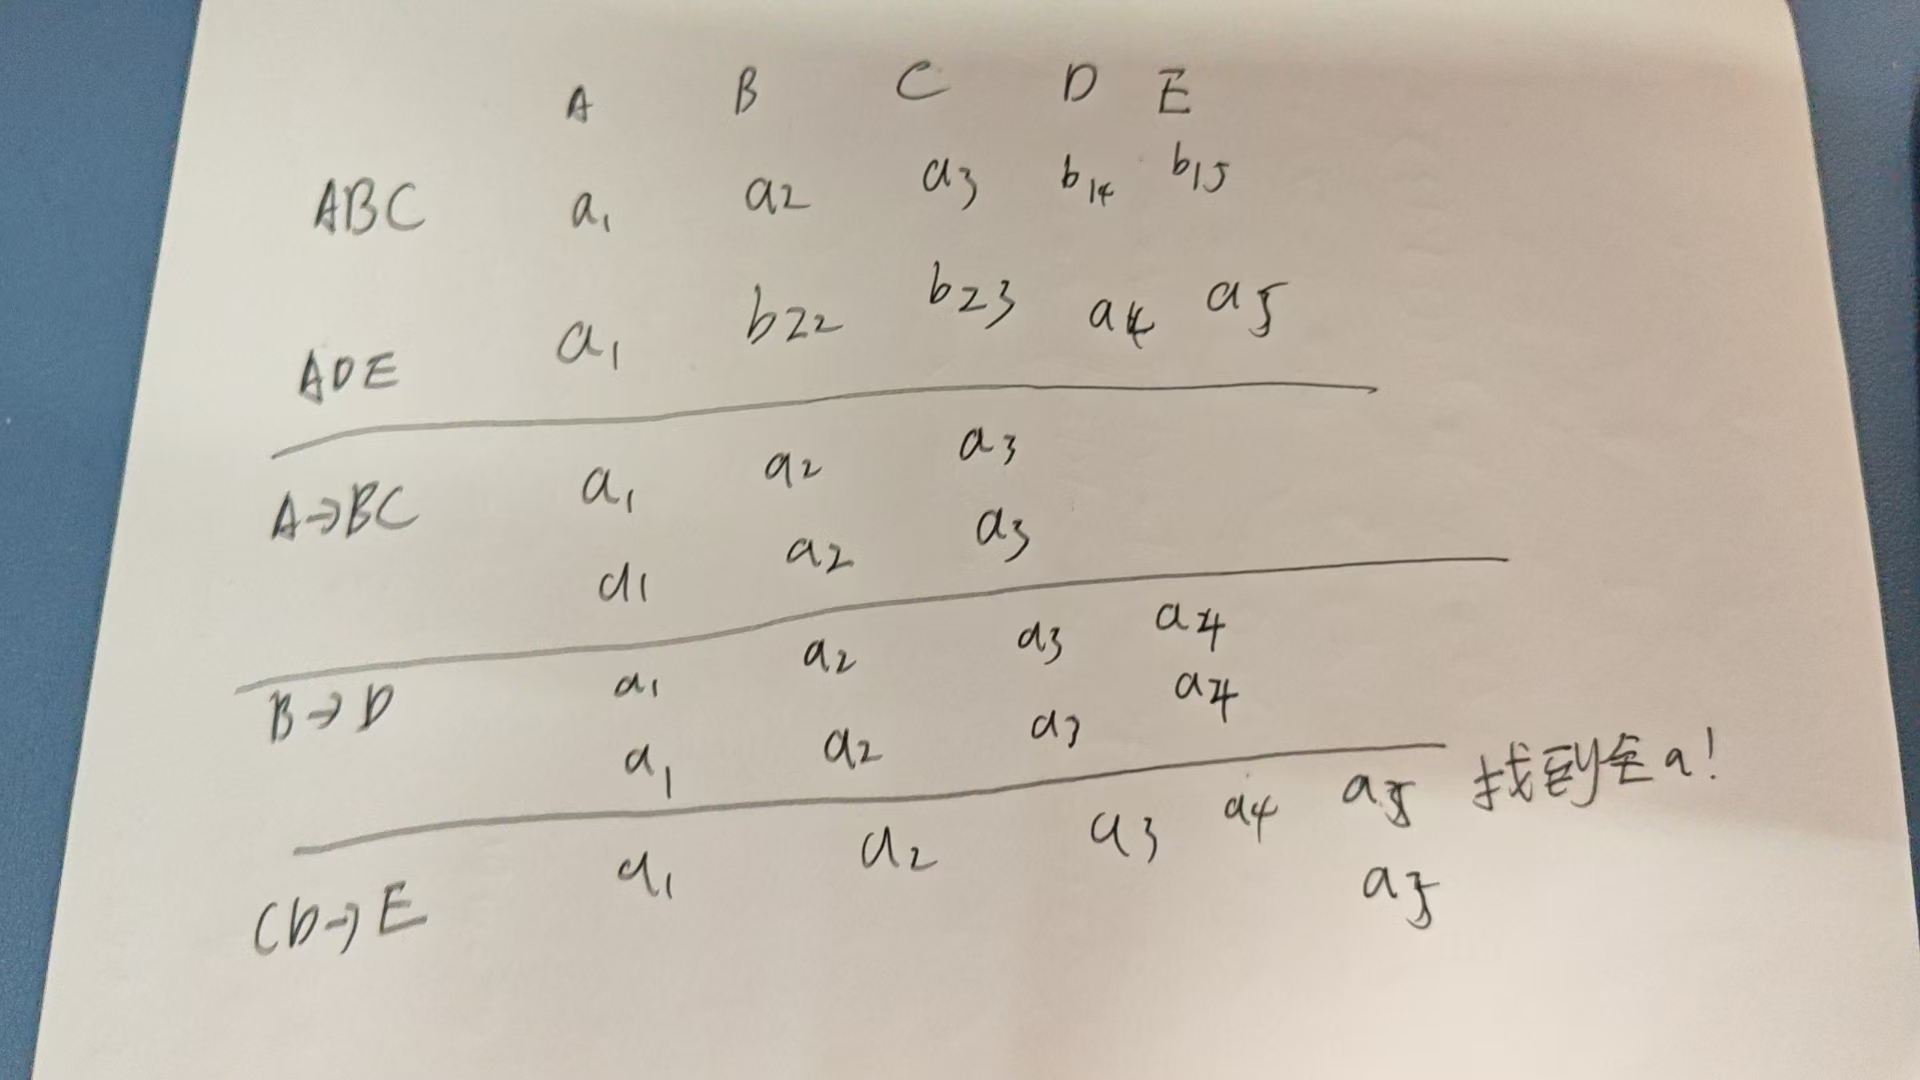 A B C D E
ABC a1 a2 a3 b14 b15
ADE a1 b22 b23 a4 a5
A→BC a1 a2 a3
a1 a2 a3
B→D a1 a2 a3 a4
a1 a2 a3 a4
CD→E a1 a2 a3 a4 a5 找到全a!
a5